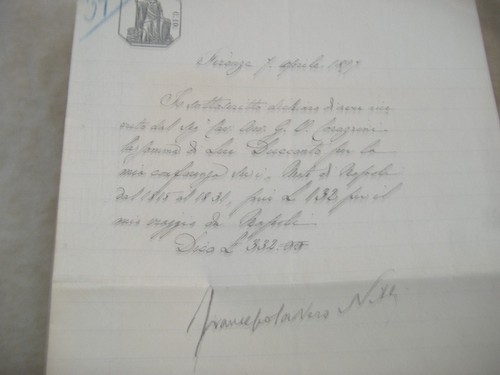 Firenze 7. aprile 1897
Io sottoscritto dichiaro di aver rice
vuto dal Sig. Cav. Avv. G. O.
la somma di Lire Duecento per la
mia conferenza su i Moti di Napoli
dal 1815 al 1831, più L 132 per il
mio viaggio da Napoli
Dico L 332.00
Francesco Saverio Nitti